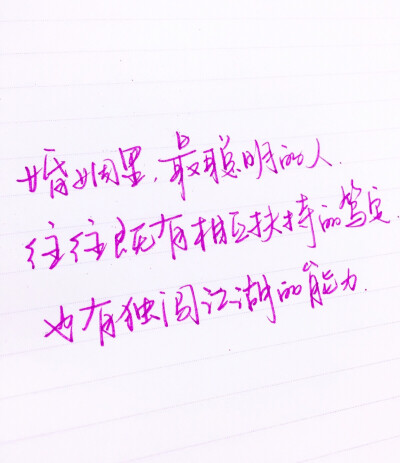 婚姻里,最聪明的人.
往往既有相互扶持的笃定.
也有独闯江湖的能力.